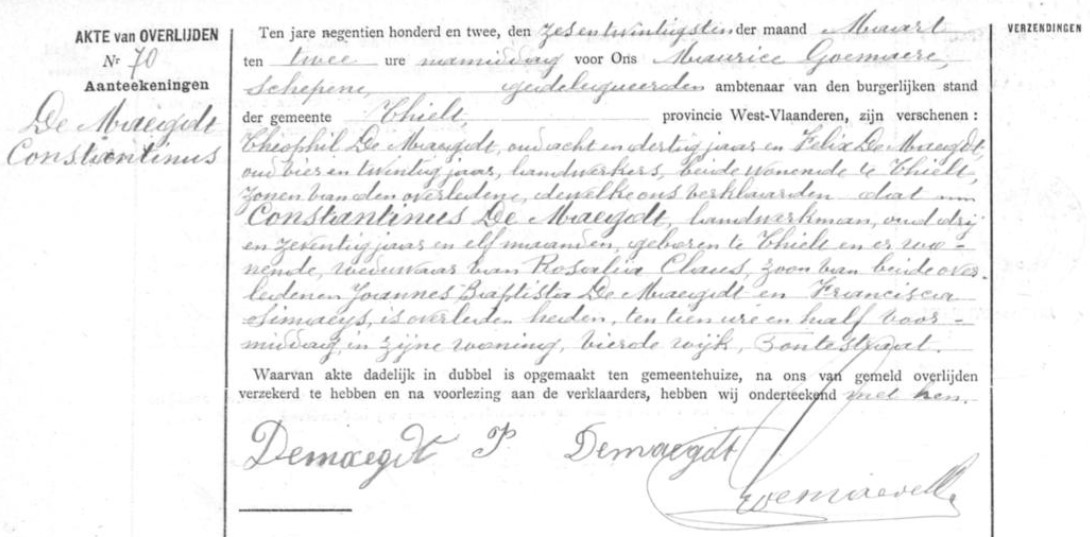 AKTE van OVERLIJDEN
Nr 70
Aanteekeningen
De Maegdt
Constantinus
Ten jare negentien honderd en twee, den zesentwintigsten der maand Maart
ten twee ure namiddag voor Ons Maurice Goemaere,
Schepene, gedelegueerden ambtenaar van den burgerlijken stand
der gemeente Thielt, provincie West-Vlaanderen, zijn verschenen :
Theophil De Maegdt, oud acht en dertig jaar en Felix De Maegdt,
oud vier en twintig jaar, landwerkers, beide wonende te Thielt,
zonen van den overledene, dewelke ons verklaarden dat
Constantinus De Maegdt, landwerkman, oud drij
en zeventig jaar en elf maanden, geboren te Thielt en er wo-
nende, weduwaar van Rosalia Claus, zoon van beide over-
ledenen Joannes Baptista De Maegdt en Francisca
Simaeys, is overleden heden, ten tien ure en half voor-
middag, in zijne woning, vierde wijk, straat.
Waarvan akte dadelijk in dubbel is opgemaakt ten gemeentehuize, na ons van gemeld overlijden
verzekerd te hebben en na voorlezing aan de verklaarders, hebben wij onderteekend met hen.
Demaegdt Demaegdt
VERZENDINGEN